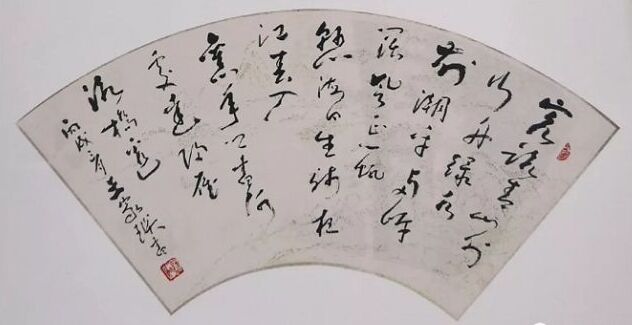 客路青山外
行舟绿水
前潮平两岸
阔风正一帆
悬海日生残夜
江春入
旧年乡书何
处达归雁
洛阳边
丙戌 王家